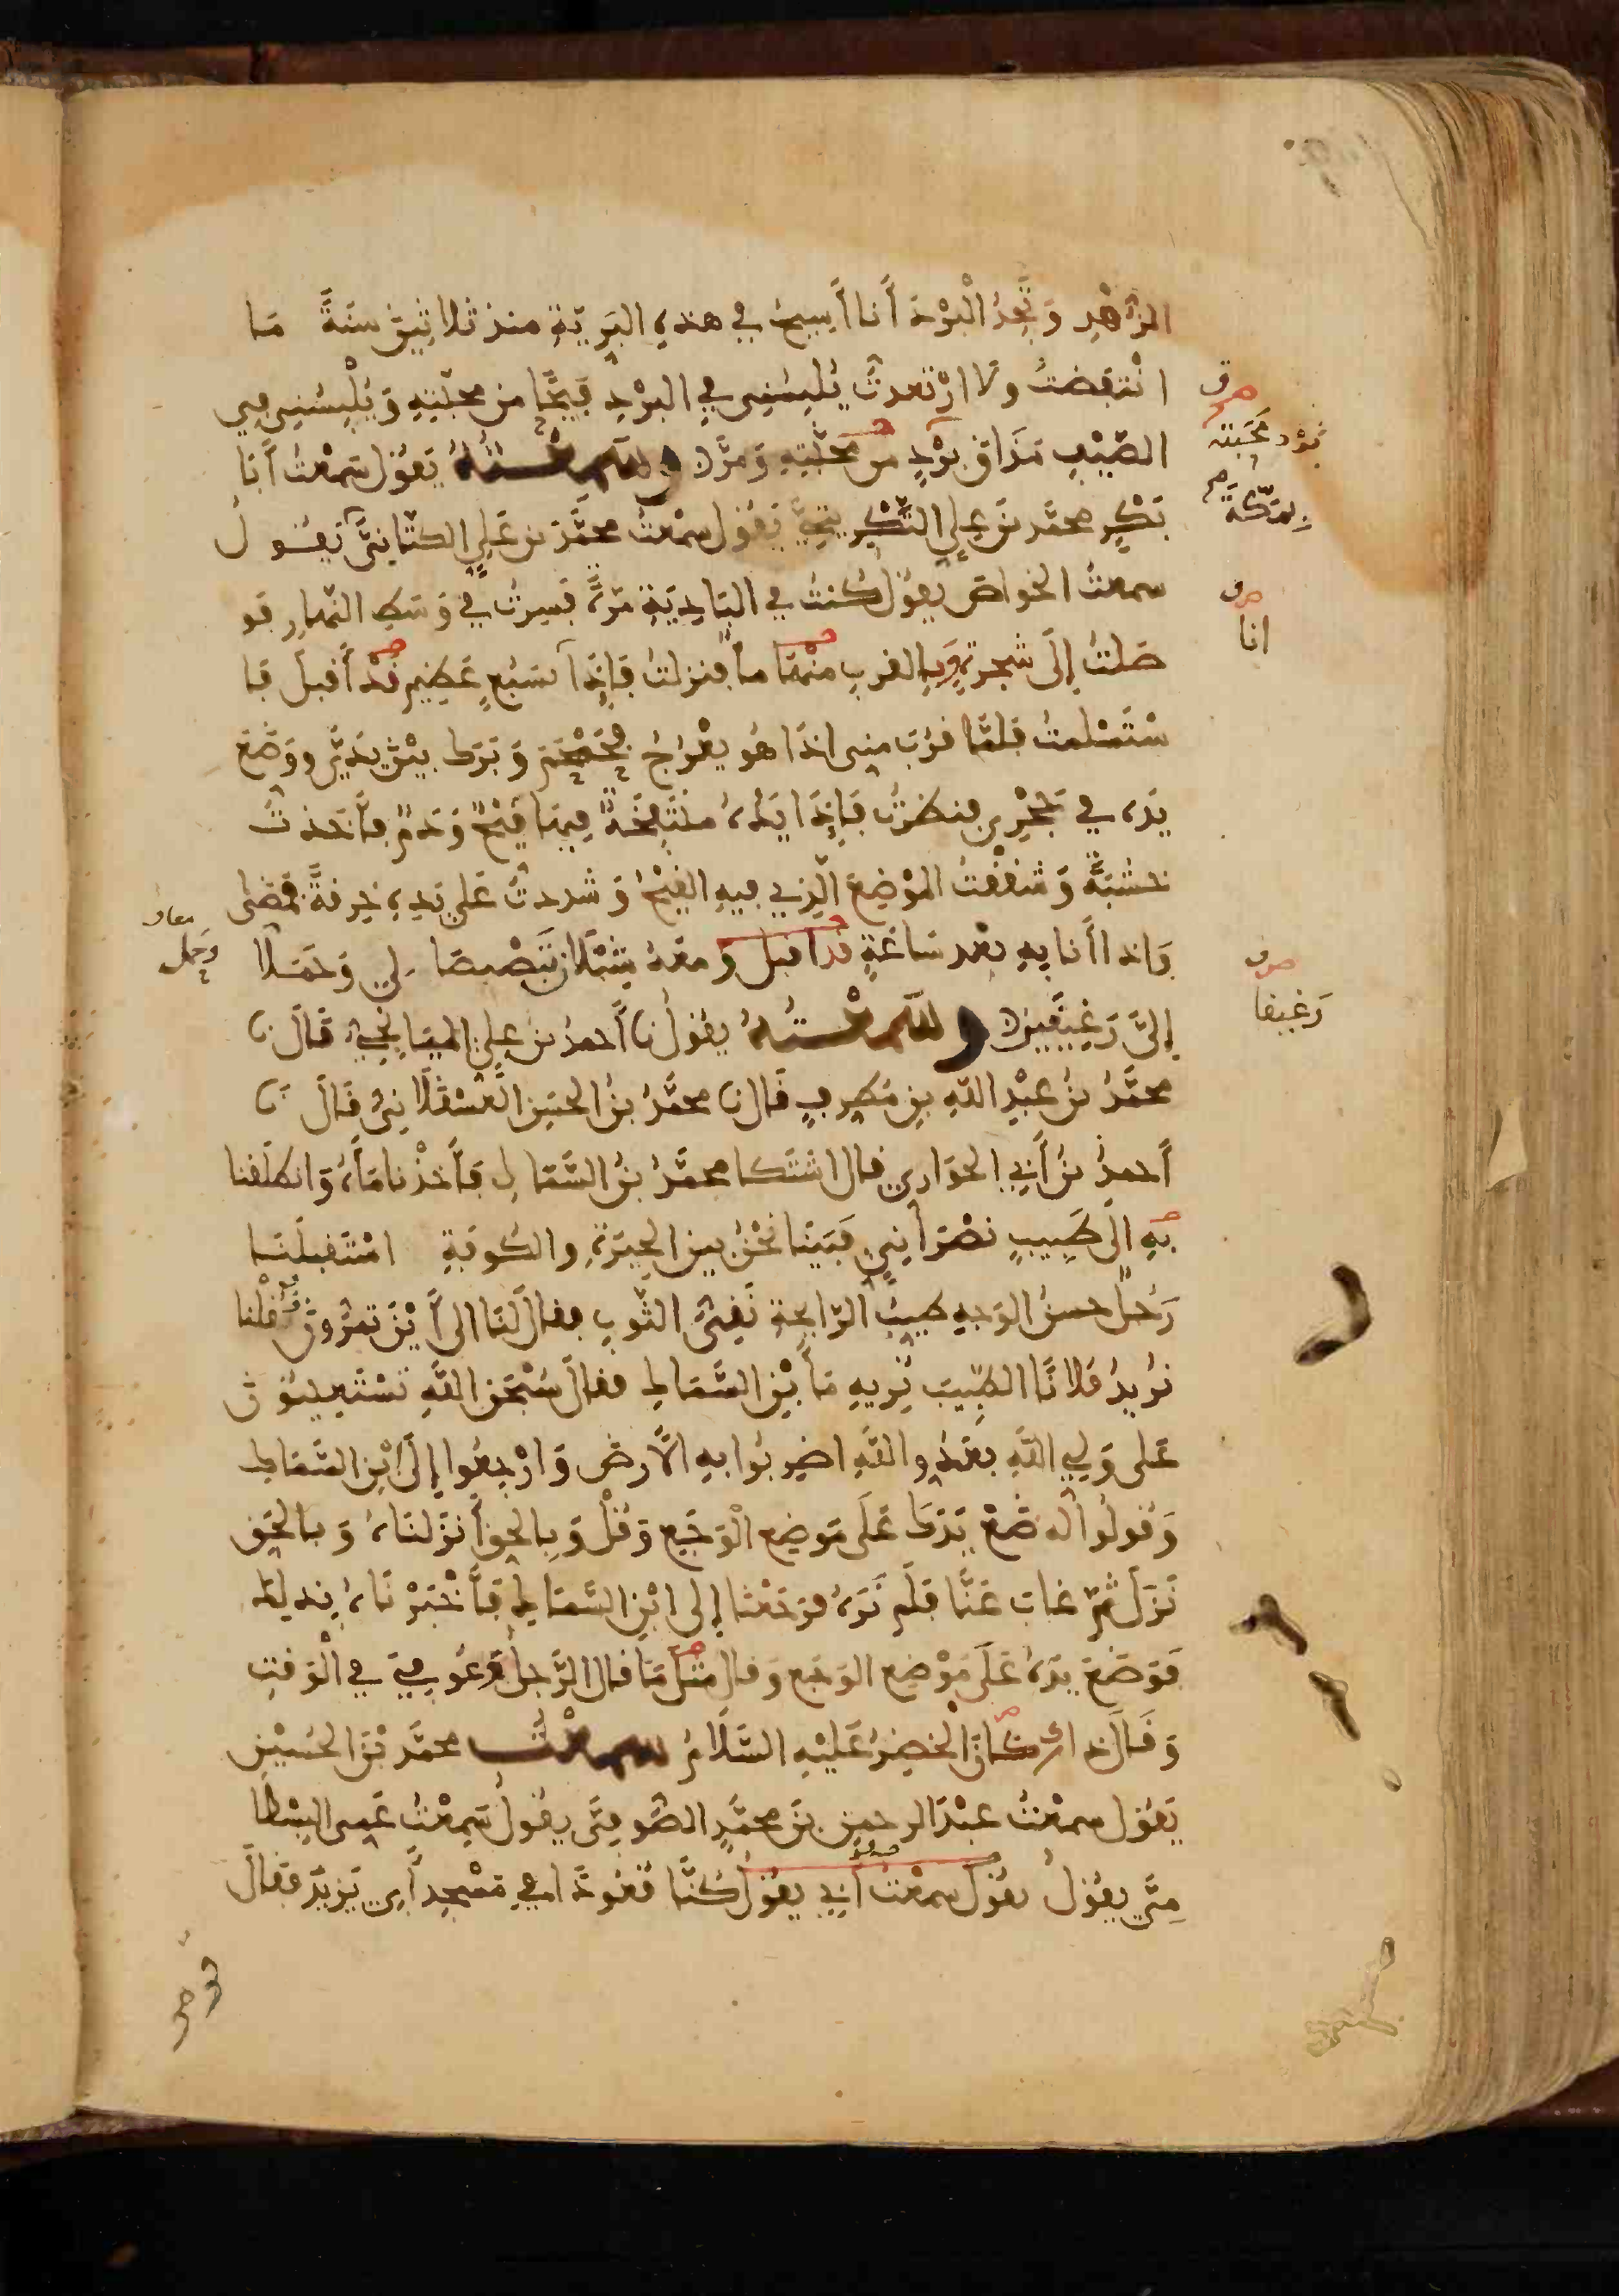 الزُّهْدِ وَتَجِدُ الْبَرْدَ أَنَا أَسِيحُ فِي هَذِهِ البَرِيَّةِ مند ثلاثِينَ سَنَةً مَا
انْتَفضتُ ولا ارْتعدتُ يُلبِسُنِي فِي البرْدِ فَيْحًا مِن محبّتِهِ وَيُلْبِسُنِي فِي
الصَّيْفِ مَذَاقَ بَرْدِ من محبّتِهِ وَمَرَّ وسمعْتُهُ يَقُول سَمِعْتُ أَبَا
بَكْرٍ محمَّد بْنَ عَلِي التَّكْرِيتِيَّ يَقُول سمعْتُ محمَّد بن عَلِيٍّ الكتّانِيَّ يَقُول
سمعتُ الخواصَ يقُول كُنتُ فِي البَادِيَةِ مَرَّةً فَسِرتُ فِي وَسَطِ النَّهارِ فَوَ
صَلتُ إِلَى شجرةٍ وَبِالقربِ مِنْهَا مآءٌ فنزلتُ فَإِذَا بسَبُعٍ عَظِيمٍ قَدْ أَقبلَ فَا
سْتَسْلَمتُ فَلَمَّا قرُبَ مني اذَا هُو يَعْرُجُ فَحَمْحَمَ وَبَرَكَ بَيْنَ يَدَيَّ ووَضَعَ
يَدَه فِي حَجْرِي فنظرتُ فَإِذَا يَدُهُ مُنْتَفِخَةٌ فِيهَا قَيْحٌ وَدَمٌ فأَخَذتُ
خَشَبَةً وَشققْتُ المَوْضِعَ الَّذِي فِيهِ القَيْحُ وَشددتُ عَلَى يَدِهِ خِرقةً فَمَضَى
فَإِذَا أَنَا بِهِ بعْد سَاعَةٍ قد اقبل ومعَهُ شِبْلَان يُبَصْبِصَا لِي وَحَمَلَا
إِلَيَّ رَغِيفَيْنِ وسمعْتُهُ يَقُول نا أَحمدُ بن عَلِي السَّايِحِ قَالَ نا
محمَّدُ بنُ عَبْدِ اللهِ بنِ مُطَرِّفٍ قَال نا محمَّدُ بنُ الحسَن العَسْقَلَانِيُّ قَالَ نا
أَحمدُ بنُ أَبِي الحوَارِي قال اشْتَكا محمَّدُ بنُ السَّمَّاك فَأَخَذْنا مَاءَهُ وَانطلَقنا
بِهِ الَى طَبِيبٍ نَصْرَانِيٍ فَبَيْنَا نَحْنُ بين الحِيرَةِ والكُوفَةِ اسْتَقبلَنا
رَجُلٌ حسنُ الوَجهِ طيبُ الرَّايحةِ نَقِيُّ الثَّوبِ فقالَ لَنَا الى أَيْنَ تريدُونَ قُلْنا
نُرِيدُ فلَانًا الطَّبِيبَ نُرِيهِ مَآءَ ابْنِ السَّمَّاكِ فقالَ سُبْحَن اللهِ تسْتَعِينُونَ
عَلى وَلِي اللَّهِ بعَدُوِ اللَّهِ اضرِبُوا بِهِ الأَرضَ وَارْجعُوا إِلَى ابْنِ السَّمَّاكِ
وَقُولُوا لَه ضَعْ يَدَكَ عَلَى مَوضِعِ الْوَجَعِ وَقُلْ وَبِالحَقِّ أَنزَلنَاهُ وَبالحَقِ
نَزَل ثمَّ غابَ عَنَّا فَلَم نَرَهُ فرَجَعْنا إلى ابْنِ السَّمَّاكِ فَأَخْبَرْنَاهُ بِذَلِكَ
فَوَضَعَ يدَهُ عَلَى مَوْضِعِ الوَجَعِ وَقال مثْلَ مَا قال الرَّجلُ فَعُوفِيَ فِي الْوَقتِ
وَقَالَ ذاك كَانَ الخضِرُ عَلَيْهِ السَّلَامُ سمعْتُ محمَّد بْنَ الحُسَيْنِ
يَقُول سمعْتُ عبْدَ الرحمن بنَ محمَّدٍ الصُّوفِيَّ يقُول سَمِعْتُ عَمِي البِسْطَا
مِيَّ يقُولُ يقُول سمعْتُ أَبِي يقُول كُنَّا قُعُودًا في مَسْجِدِ أَبِي يَزِيدَ فقَالَ
صرف
بَرْد مَحَبَّته
بِبَرَكَة
صرف
انا
صرف
رَغيفا
معا
وَحمل
قوموا